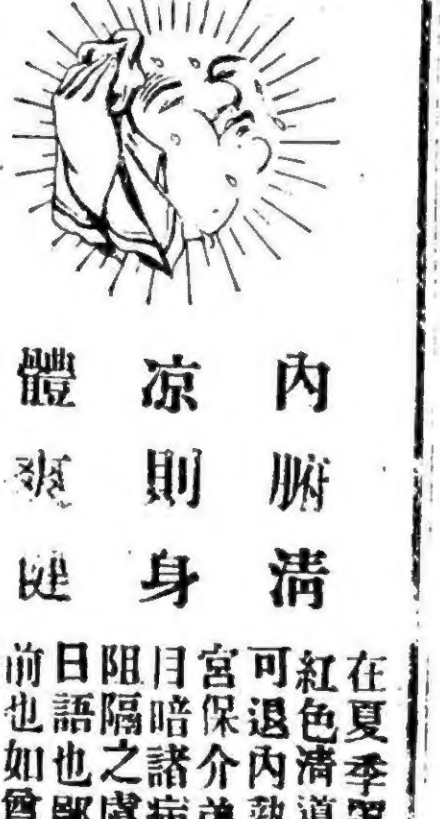 內腑清
涼則身
體爽健
在夏季
紅色清道
可退內熱
宮保介
月暗諸病
阻隔之處
日語也鄙
前也如曾